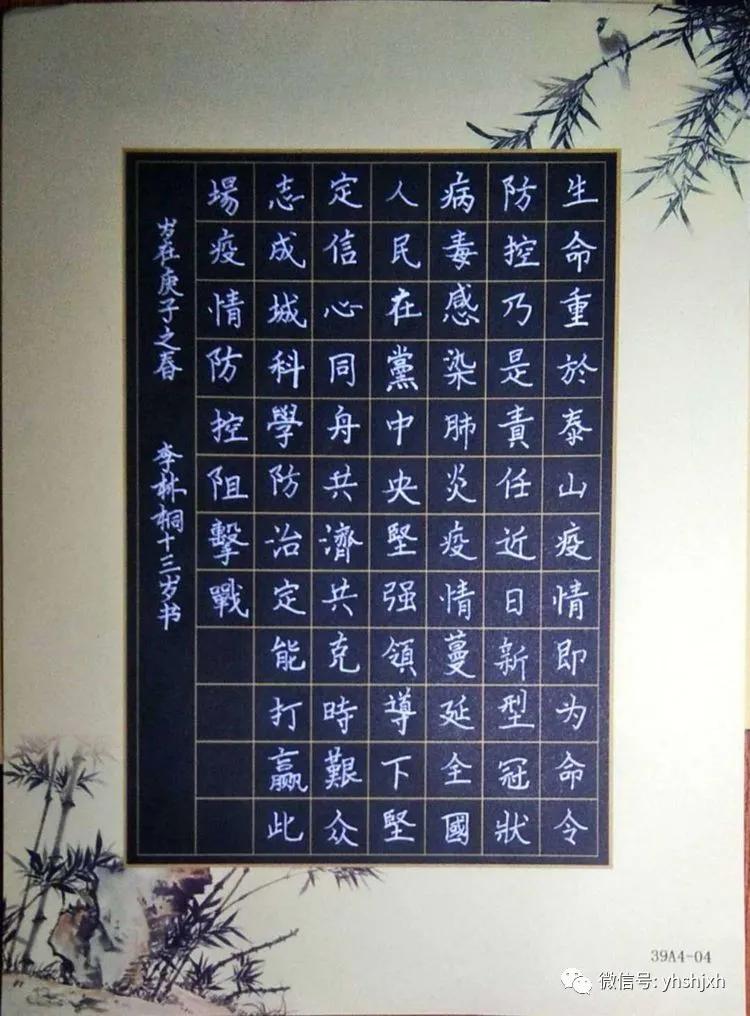 生命重於泰山疫情即为命令
防控乃是責任近日新型冠狀
病毒感染肺炎疫情蔓延全國
人民在黨中央堅强領導下堅
定信心同舟共濟共克時艱众
志成城科學防治定能打赢此
場疫情防控阻擊戰
岁在庚子之春 李林桐十三岁书
39A4-04
微信号: yhshjxh